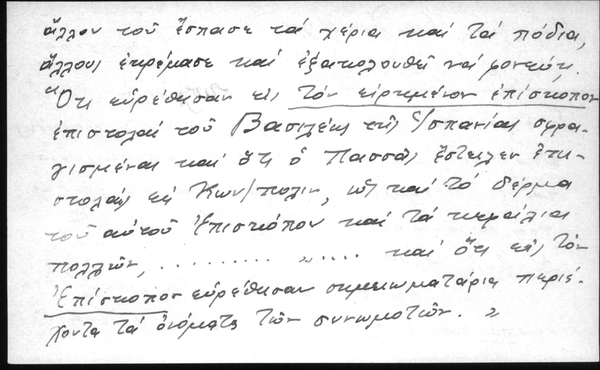 ἄλλον τοῦ ἔσπασε τά χέρια καί τά πόδια,
ἄλλους ἐκρέμασε καί ἐξακολουθεῖ νά φονεύῃ.
"Ὅτι εὑρέθησαν εἰς τόν εἰρημένον ἐπίσκοπον
ἐπιστολαί τοῦ Βασιλέως τῆς Ἱσπανίας σφρα-
γισμέναι καί ὅτι ὁ Πασσᾶς ἔστειλεν ἐπι-
στολάς εἰς Κων/πολιν, ὡς καί τό δέρμα
τοῦ αὐτοῦ Ἐπισκόπου καί τά κεφάλια
πολλῶν, .......... " .... καί ὅτι εἰς τόν
Ἐπίσκοπον εὑρέθησαν σημειωματάρια περιέ-
χοντα τά ὀνόματα τῶν συνωμοτῶν. "